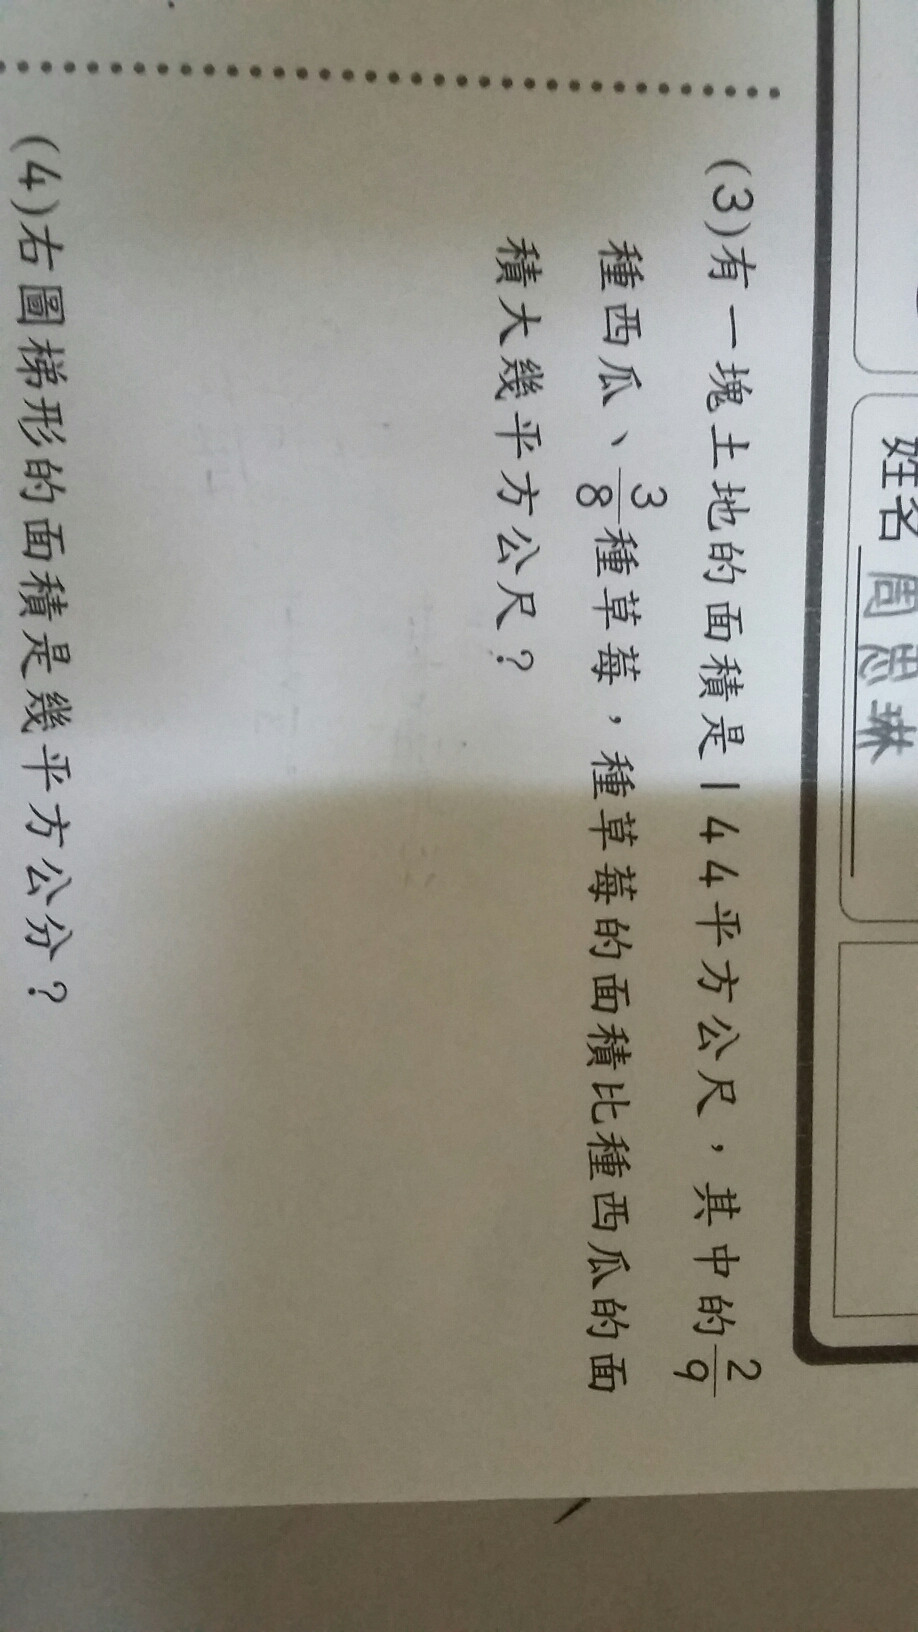 姓名 周思琳
(3)有一塊土地的面積是144平方公尺，其中的2/9
種西瓜、3/8種草莓，種草莓的面積比種西瓜的面
積大幾平方公尺？
(4)右圖梯形的面積是幾平方公分？